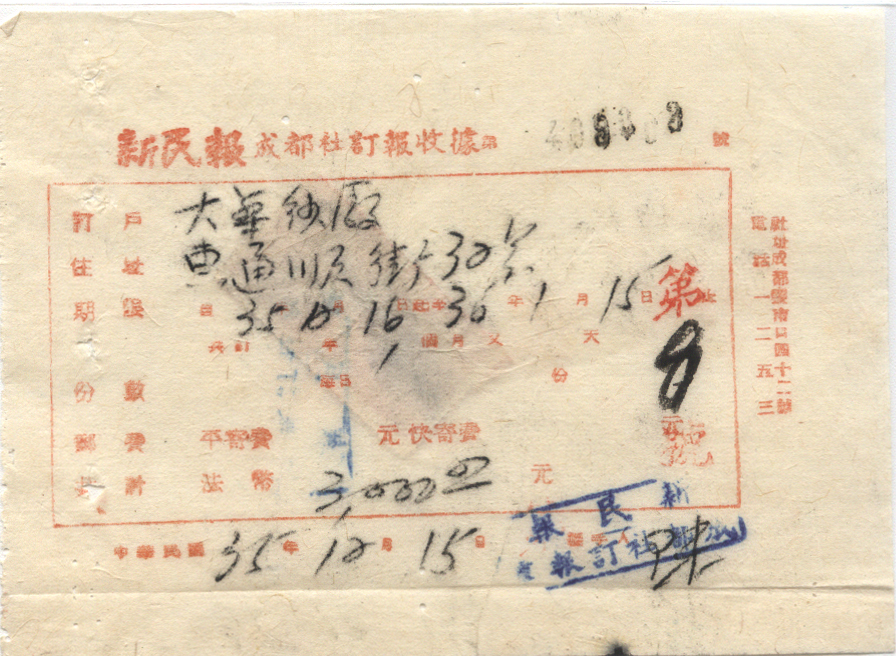 新民報成都社訂報收據第 號
訂戶 大華紗廠
住址 東通順街30號
期限 自35年12月16日起至36年1月15日止
共訂 年1個月又 天
份數 每日 份
第 號
郵費 平寄費 元快寄費 元
共計 法幣 3,000.00 元
中華民國35年12月15日 經手人 陳
新民報
成都社訂報
電話一二五三